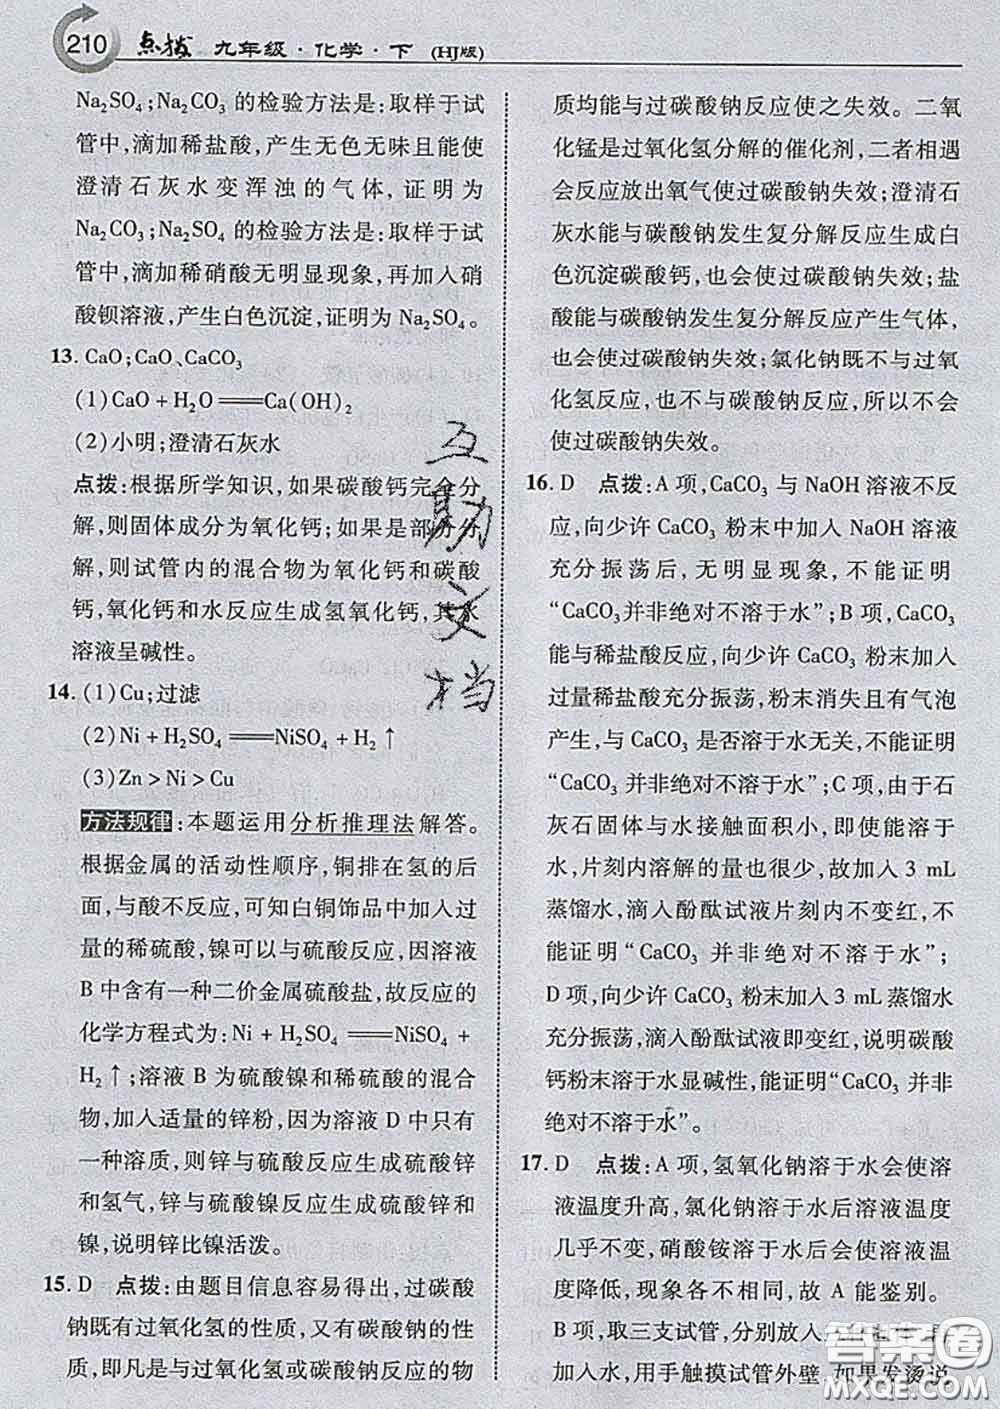 210 点拨 九年级·化学·下 (HJ版)
Na₂SO₄;Na₂CO₃ 的检验方法是:取样于试
管中,滴加稀盐酸,产生无色无味且能使
澄清石灰水变浑浊的气体,证明为
Na₂CO₃;Na₂SO₄ 的检验方法是:取样于试
管中,滴加稀硝酸无明显现象,再加入硝
酸钡溶液,产生白色沉淀,证明为 Na₂SO₄。
13. CaO;CaO、CaCO₃
(1)CaO + H₂O ══ Ca(OH)₂
(2)小明;澄清石灰水
点拨:根据所学知识,如果碳酸钙完全分
解,则固体成分为氧化钙;如果是部分分
解,则试管内的混合物为氧化钙和碳酸
钙,氧化钙和水反应生成氢氧化钙,其水
溶液呈碱性。
14. (1)Cu;过滤
(2)Ni + H₂SO₄ ══ NiSO₄ + H₂↑
(3)Zn > Ni > Cu
方法规律:本题运用分析推理法解答。
根据金属的活动性顺序,铜排在氢的后
面,与酸不反应,可知白铜饰品中加入过
量的稀硫酸,镍可以与硫酸反应,因溶液
B 中含有一种二价金属硫酸盐,故反应的
化学方程式为:Ni + H₂SO₄ ══ NiSO₄ +
H₂↑;溶液 B 为硫酸镍和稀硫酸的混合
物,加入适量的锌粉,因为溶液 D 中只有
一种溶质,则锌与硫酸反应生成硫酸锌
和氢气,锌与硫酸镍反应生成硫酸锌和
镍,说明锌比镍活泼。
15. D 点拨:由题目信息容易得出,过碳酸
钠既有过氧化氢的性质,又有碳酸钠的性
质,即凡是与过氧化氢或碳酸钠反应的物
质均能与过碳酸钠反应使之失效。二氧
化锰是过氧化氢分解的催化剂,二者相遇
会反应放出氧气使过碳酸钠失效;澄清石
灰水能与碳酸钠发生复分解反应生成白
色沉淀碳酸钙,也会使过碳酸钠失效;盐
酸能与碳酸钠发生复分解反应产生气体,
也会使过碳酸钠失效;氯化钠既不与过氧
化氢反应,也不与碳酸钠反应,所以不会
使过碳酸钠失效。
16. D 点拨:A 项,CaCO₃ 与 NaOH 溶液不反
应,向少许 CaCO₃ 粉末中加入 NaOH 溶液
充分振荡后,无明显现象,不能证明
“CaCO₃并非绝对不溶于水”;B 项,CaCO₃
能与稀盐酸反应,向少许 CaCO₃ 粉末加入
过量稀盐酸充分振荡,粉末消失且有气泡
产生,与 CaCO₃ 是否溶于水无关,不能证明
“CaCO₃ 并非绝对不溶于水”;C 项,由于石
灰石固体与水接触面积小,即使能溶于
水,片刻内溶解的量也很少,故加入 3 mL
蒸馏水,滴入酚酞试液片刻内不变红,不
能证明“CaCO₃ 并非绝对不溶于水”;
D 项,向少许 CaCO₃ 粉末加入 3 mL 蒸馏水
充分振荡,滴入酚酞试液即变红,说明碳酸
钙粉末溶于水显碱性,能证明“CaCO₃ 并非
绝对不溶于水”。
17. D 点拨:A 项,氢氧化钠溶于水会使溶
液温度升高,氯化钠溶于水后溶液温度
几乎不变,硝酸铵溶于水会使溶液温
度降低,现象各不相同,故 A 能鉴别。
B 项,取三支试管,分别放入
加入水,用手触摸试管外壁,如果发烫说
互助文档
答案圈
MXQE.COM